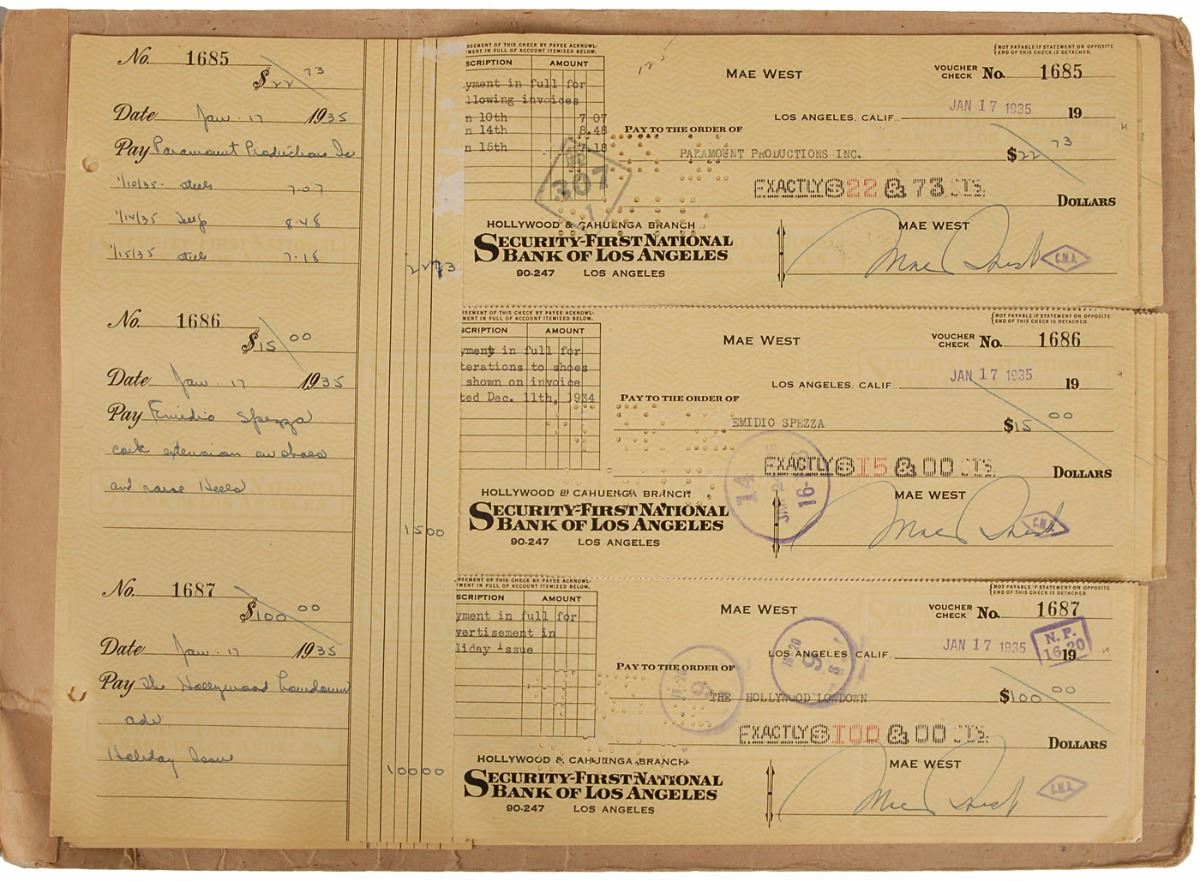 No. 1685
$22 73
Date Jan. 17 1935
Pay Paramount Productions Inc
1/10/35 7.07
1/14/35 8.48
1/15/35 7.18
22 73
No. 1686
$15 00
Date Jan. 17 1935
Pay Emidio Spezza
cork extension on shoes
and raise Heels
15 00
No. 1687
$100 00
Date Jan. 17 1935
Pay The Hollywood Lowdown
adv.
Holiday Issue
100 00
RSEMENT OF THIS CHECK BY PAYEE ACKNOWL-
MENT IN FULL OF ACCOUNT ITEMIZED BELOW.
SCRIPTION AMOUNT
yment in full for
llowing invoices
n 10th 7 07
n 14th 8.48
n 15th 7.18
307
1
NOT PAYABLE IF STATEMENT ON OPPOSITE
END OF THIS CHECK IS DETACHED.
MAE WEST
VOUCHER CHECK No. 1685
LOS ANGELES, CALIF. JAN 17 1935 19
PAY TO THE ORDER OF
PARAMOUNT PRODUCTIONS INC. $22 73
EXACTLY $22 & 73 CTS
DOLLARS
HOLLYWOOD & CAHUENGA BRANCH
SECURITY-FIRST NATIONAL
BANK OF LOS ANGELES
90-247 LOS ANGELES
MAE WEST
Mae West
C.M.A.
RSEMENT OF THIS CHECK BY PAYEE ACKNOWL-
MENT IN FULL OF ACCOUNT ITEMIZED BELOW.
SCRIPTION AMOUNT
yment in full for
terations to shoes
shown on invoice
ted Dec. 11th, 1934
NOT PAYABLE IF STATEMENT ON OPPOSITE
END OF THIS CHECK IS DETACHED.
MAE WEST
VOUCHER CHECK No. 1686
LOS ANGELES, CALIF JAN 17 1935 19
PAY TO THE ORDER OF
EMIDIO SPEZZA $15 00
EXACTLY $15 & 00 CTS
DOLLARS
14
HOLLYWOOD & CAHUENGA BRANCH
SECURITY-FIRST NATIONAL
BANK OF LOS ANGELES
90-247 LOS ANGELES
MAE WEST
Mae West
C.M.A.
RSEMENT OF THIS CHECK BY PAYEE ACKNOWL-
MENT IN FULL OF ACCOUNT ITEMIZED BELOW.
SCRIPTION AMOUNT
yment in full for
vertisement in
liday issue
NOT PAYABLE IF STATEMENT ON OPPOSITE
END OF THIS CHECK IS DETACHED
MAE WEST
VOUCHER CHECK No. 1687
N. P.
16-20
LOS ANGELES CALIF. JAN 17 1935 19
PAY TO THE ORDER OF
THE HOLLYWOOD LOWDOWN $100 00
EXACTLY $100 & 00 CTS
DOLLARS
HOLLYWOOD & CAHUENGA BRANCH
SECURITY-FIRST NATIONAL
BANK OF LOS ANGELES
90-247 LOS ANGELES
MAE WEST
Mae West
C.M.A.